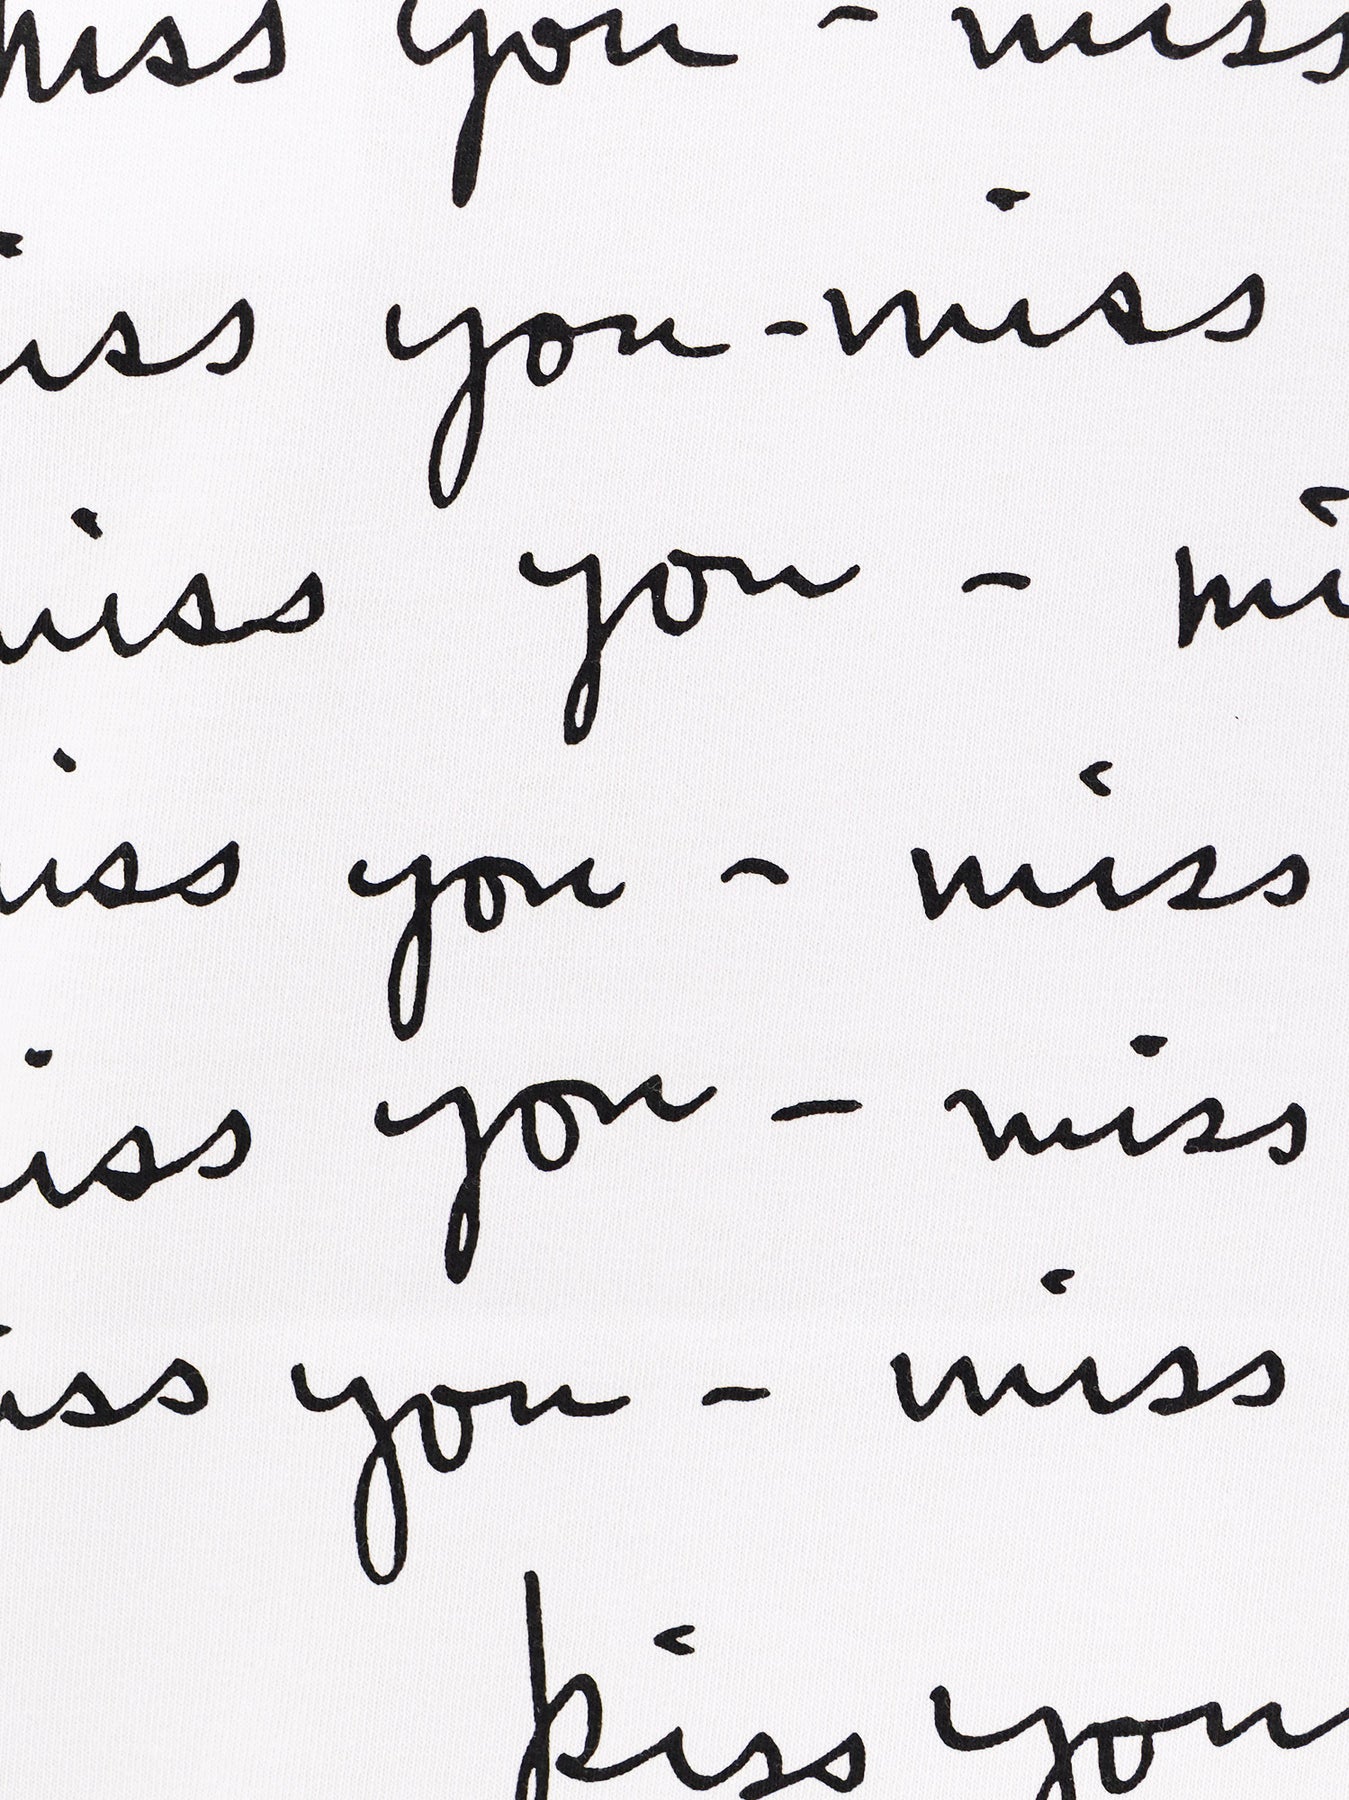 miss you - miss
iss you - miss
miss you - mi
iss you - miss
iss you - miss
iss you - miss
kiss you